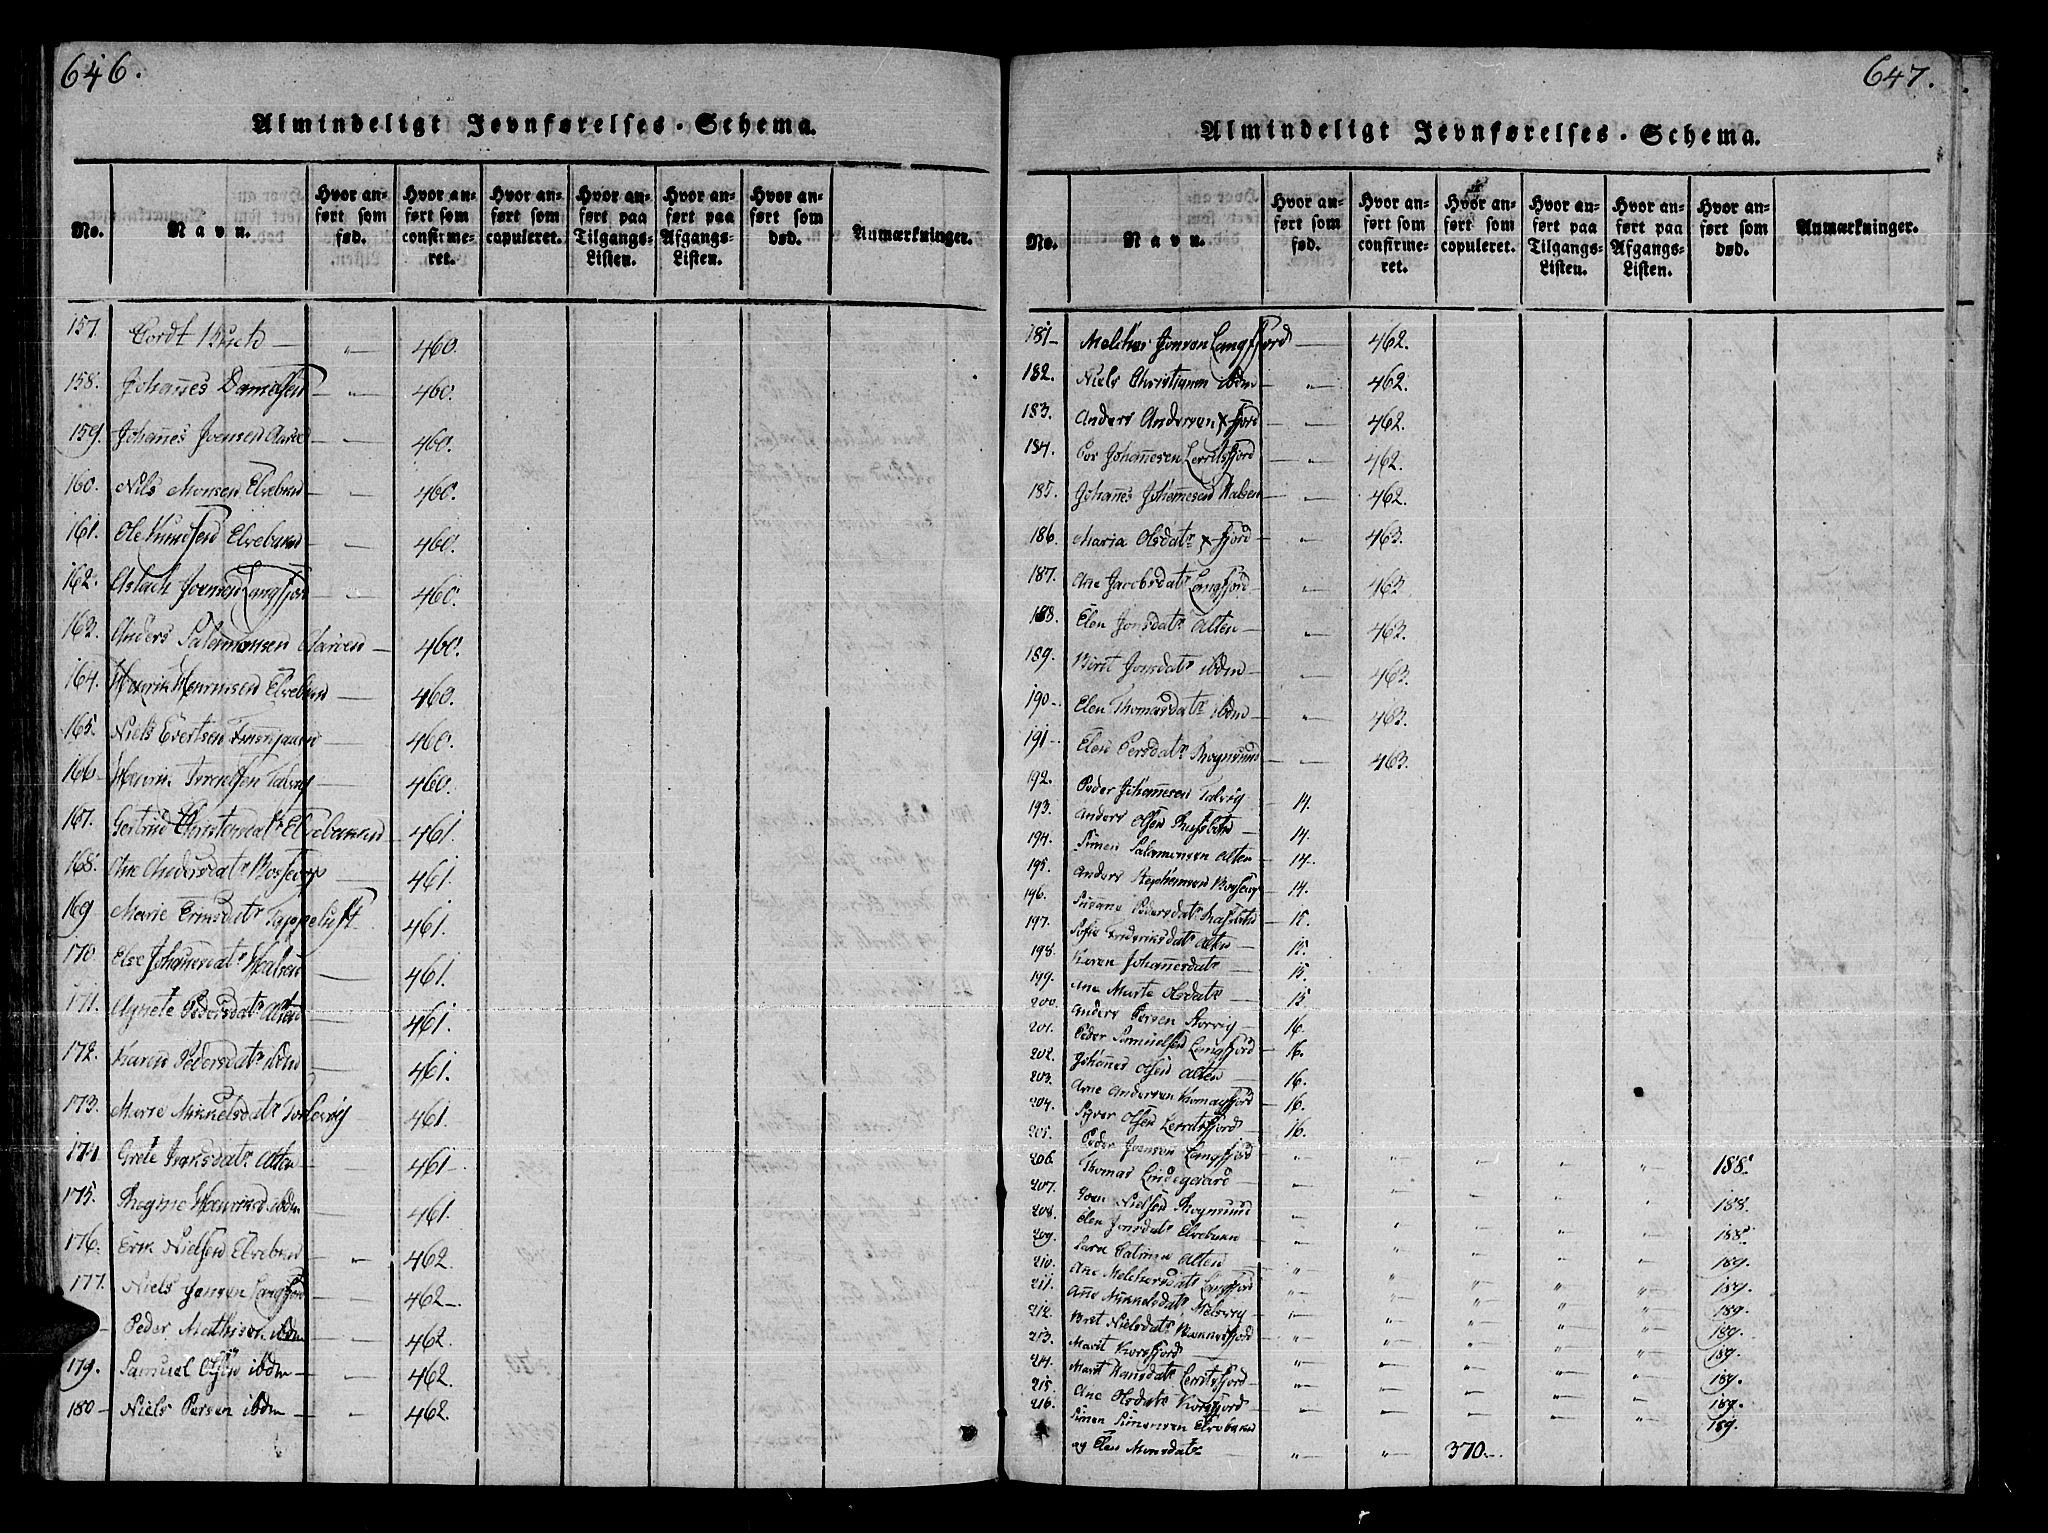 646.
Almindeligt Jevnførelses-Schema.
No. Navn. Hvor anført som fød. Hvor anført som confirmeret. Hvor anført som copuleret. Hvor anført paa Tilgangs-Listen. Hvor anført paa Afgangs-Listen. Hvor anført som død. Anmærkninger.
157. Cordt Buch — " — 460.
158. Johannes — " — 460.
159. Johannes Joensen — 460.
160. Nils Monsen Elvebakn — 460.
161. Ole Elvebakn — 460.
162. Aslach Joensen Langfjord — 460.
163. Anders Salamonsen — 460.
164. Henrik Henriksen Elvebakn — 460.
165. Niels Evertsen — 460.
166 — Henrik Talvig — 460.
167. Gertrud Elvebakken — 461.
168. Ane Andersdatr Bossecop — 461.
169 Marie Tappeluft — 461.
170. Else Johannesdatr — 461.
171. Agnete Pedersdatr Alten — 461.
172. Karen Pedersdatr ibdm — 461.
173. Marie Mikkelsdatr — 461.
174 Grete Isaksdatr Alten — 461 —
175. Regine ibdm — 461.
176. Erik Nielsen Elvebakn — " — 462.
177. Niels Jonsen Langfjord — " — 462 —
— Peder Mathisen ibdm — 462.
179. Samuel Olsen ibdm — " — 462.
180 — Niels Persen ibdm — " — 462.
647.
Almindeligt Jevnførelses-Schema.
No. Navn. Hvor anført som fød. Hvor anført som confirmeret. Hvor anført som copuleret. Hvor anført paa Tilgangs-Listen. Hvor anført paa Afgangs-Listen. Hvor anført som død. Anmærkninger.
181 — Melcher Jonsen Langfjord — 462.
182. Niels Christiansen ibdm — " — 462.
183. Anders Andersen xfjord — " — 462.
184. Johannesen Lerritsfjord — " — 462.
185. Johannes Johannesen — " — 462.
186. Maria Olsdatr xfjord — " — 463.
187. Ane Jacobsdatr Langfjord — " — 463.
188. Elen Jonsdatr Alten — " — 463.
189. Birit Jonsdatr ibdm — " — 463.
190 — Elen Thomasdatr ibdm — " — 463.
191 — Elen Persdatr Rognsund — " — 463.
192. Peder Johannesen Talvig — 14.
193. Anders Olsen — 14.
194. Simen Salamonsen Alten — 14.
195. Anders Stephansen — 14.
196. Susane Pedersdatr — 15.
197. Sofie Frederiksdatr Alten — 15.
198. Karen Johannesdatr — 15.
199. Ane Marte Olsdatr — 15.
200. Anders Persen Storvig — 16.
201. Peder Samuelsen Langfjord — 16.
202. Johannes Olsen Alten — 16.
203. Arne Andersen Komagfjord — 16.
204. Siver Olsen Lerritsfjord — 16.
205. Peder Joensen Langfjord " — " — " — " — " — 188.
206. Thomas Lindegaard — " — " — " — " — " — 188.
207. Joen Nielsen Rognsund " — " — " — " — " — 188.
208. Elen Jonsdatr Elvebakn " — " — " — " — " — 189.
209. Sara Catrina Alten " — " — " — " — " — 189.
210. Ane Melchersdatr Langfjord " — " — " — " — " — 189.
211. Ane Mikkelsdatr " — " — " — " — " — 189.
212. Brit Nielsdatr " — " — " — " — " — 189.
213. Marit Korsfjord — " — " — " — " — " — 189.
214. Marit Hansdatr Lerritsfjord — " — " — " — " — " — 189.
215. Ane Olsdatr Korsfjord " — " — " — " — " — 189.
216. Simen Simensen Elvebakn
og Elen Monsdatr " — " — 370 —